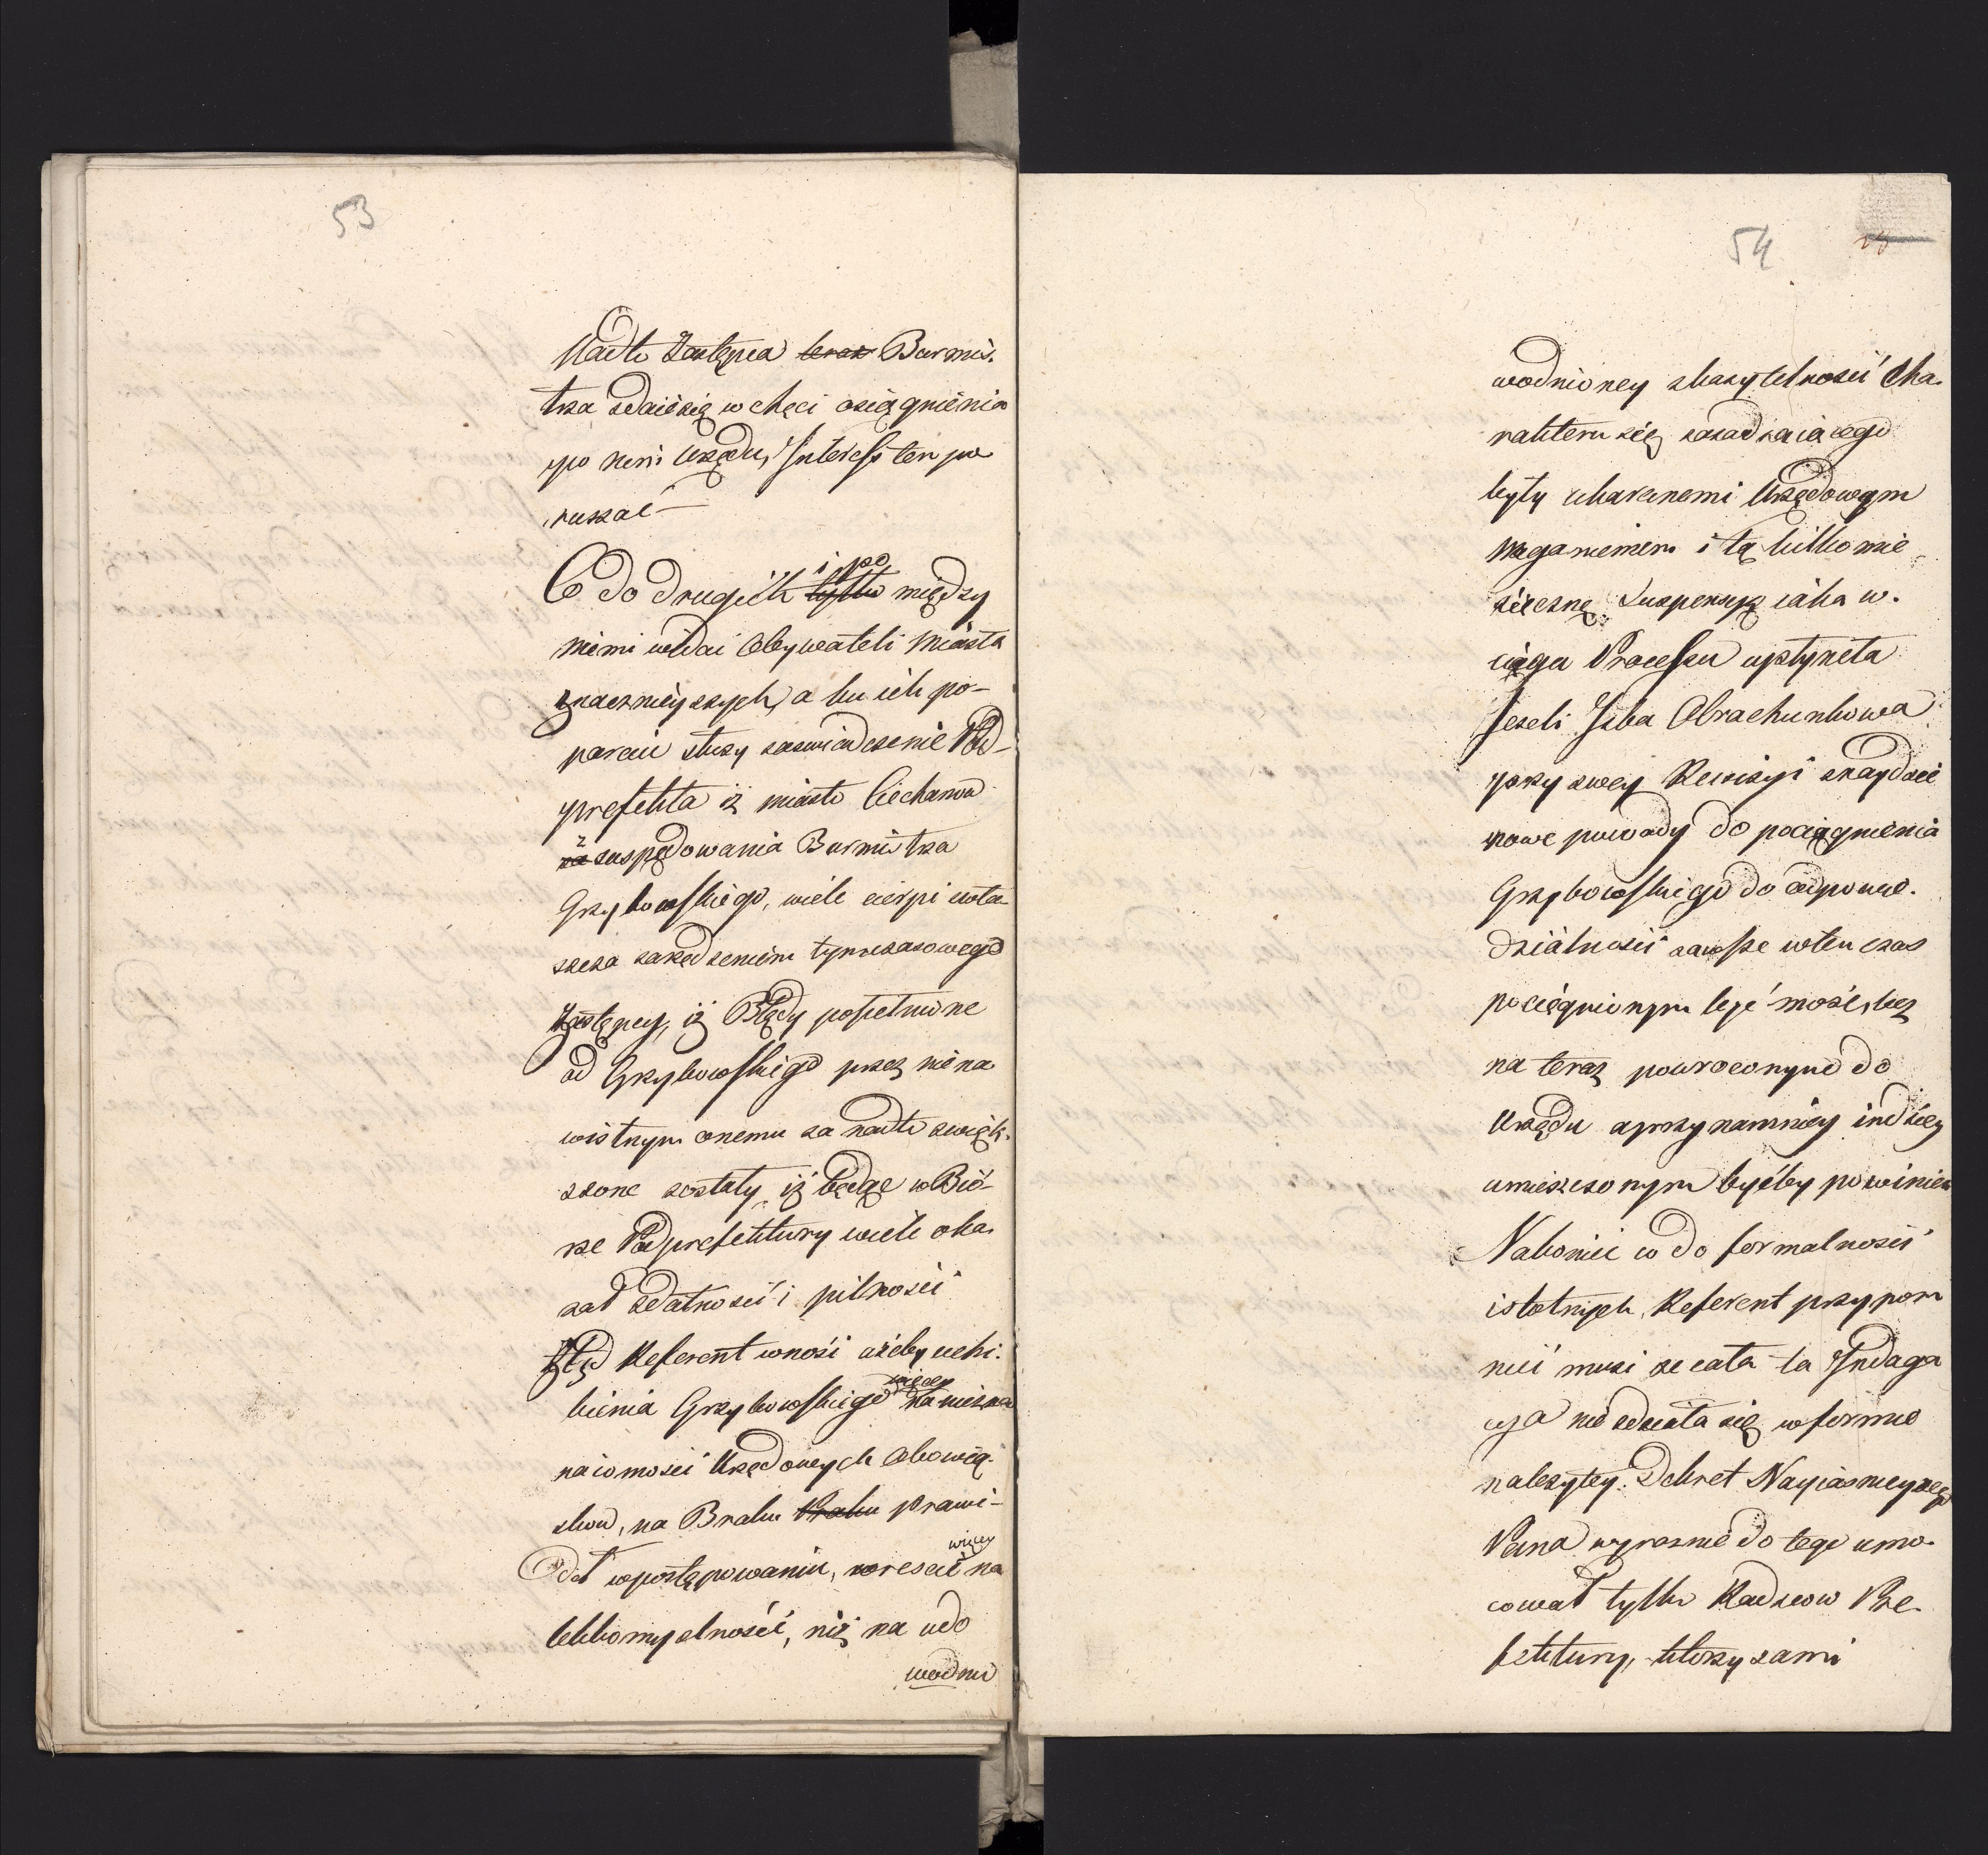 53
Nadto Zastępca teraz Burmis-
trza zdaie się w chęci osiągnienia
po nim Urzędu, Interess ten po
ruszać
Co do drugich tylko i po między
niemi widai Obywateli Miasta
znacznieyszych, a ku ich po-
parciu służy zaswiadczenie Pod-
prefekta iż miasto Ciechanow
za z suspędowania Burmistrza
Grzybowskiego, wiele cierpi zwła-
szcza zarządzeniem tymczasowego
Zastępcy, iż Błędy popełnione
od Grzybowskiego przez niena
wistnym onemu za nadto zwięk-
szone zostały iż będąc w Bió-
rze Podprefektury wiele oka-
zał zdatności i pilności
Ztąd Referent wnosi ażeby uchi-
bienia Grzybowskiego więcey na niezna
naiomości Urzędowych obowią-
zkow, na Braku Braku prawi-
deł w postępowaniu, wreście więcey na
lekkomyslności, niż na udo
wodnio
54
28
wodnioney zkazytelności Cha-
rakteru się zasadzaiącego
były ukaranemi Urzędowym
naganieniem i tą kilkomie-
sięczną Suspensyą iaka w
ciągu Processu upłyneła
Jeżeli Izba Obrachunkowa
przy swey Rewizyi znaydzie
nowe powody do pociągnienia
Grzybowskiego do odpowie-
dzialności zawsze w ten czas
pociągnionym być może, lecz
na teraz powroconym do
Urzędu a przynamniey indziey
umieszczonym byćby powinien
Nakoniec co do formalności
istotnych, Referent przypom
nieć musi że cała ta Indaga
cya nie odbyła się w formie
należytey. Dekret Nayiasnieyszego
Pana wyraznie do tego umo-
cował tylko Radzcow Pre-
fektury, ktorzy sami